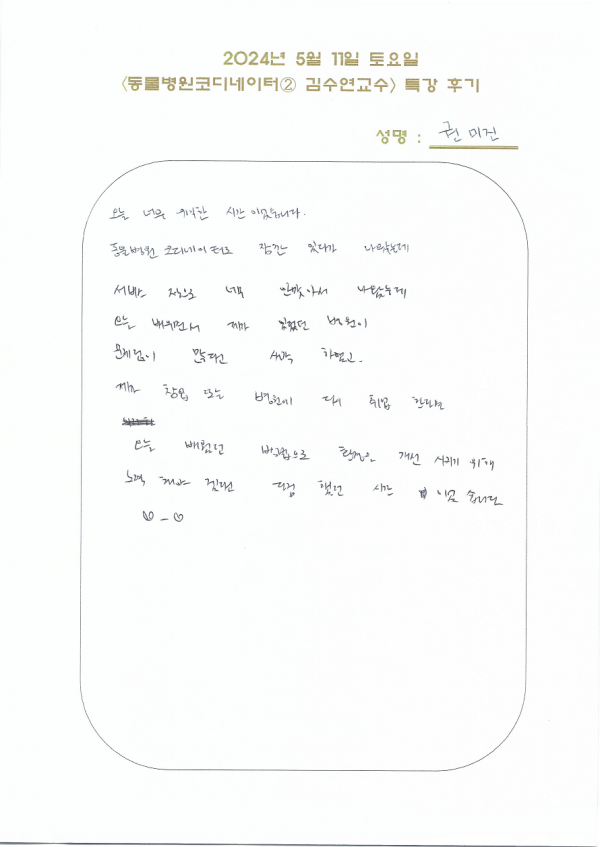 2024년 5월 11일 토요일
<동물병원코디네이터② 김수연교수> 특강 후기
성명 : 권미진
오늘 너무 유익한 시간이였습니다.
동물병원 코디네이터로 잠깐 있다가 나왔는데
서비스 적으로 너무 안맞아서 나왔는데
오늘 배우면서 제가 있었던 병원이
문제점이 많다고 생각 하였고.
제가 창업 또는 병원에 다시 취업 한다면
오늘 배웠던 방법으로 환경을 개선 시키기 위해
노력 해야 겠다고 다짐 했던 시간 이였습니다
♡_♡